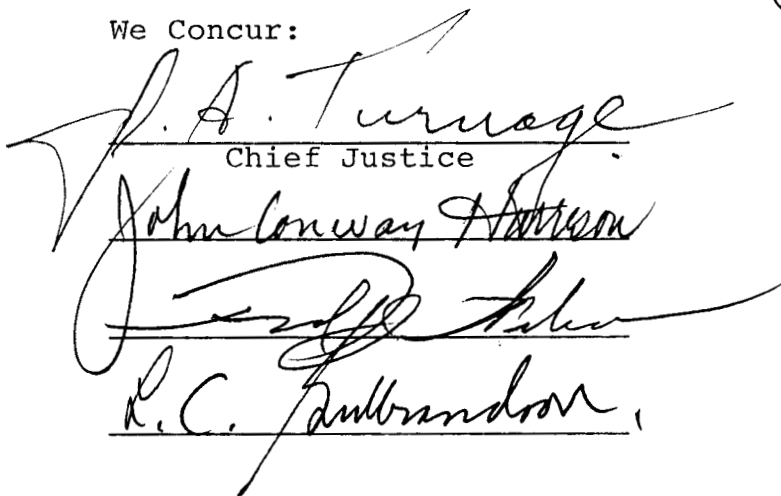 We Concur:
J. A. Turnage
Chief Justice
John Conway Harrison
L. C. Gulbrandson